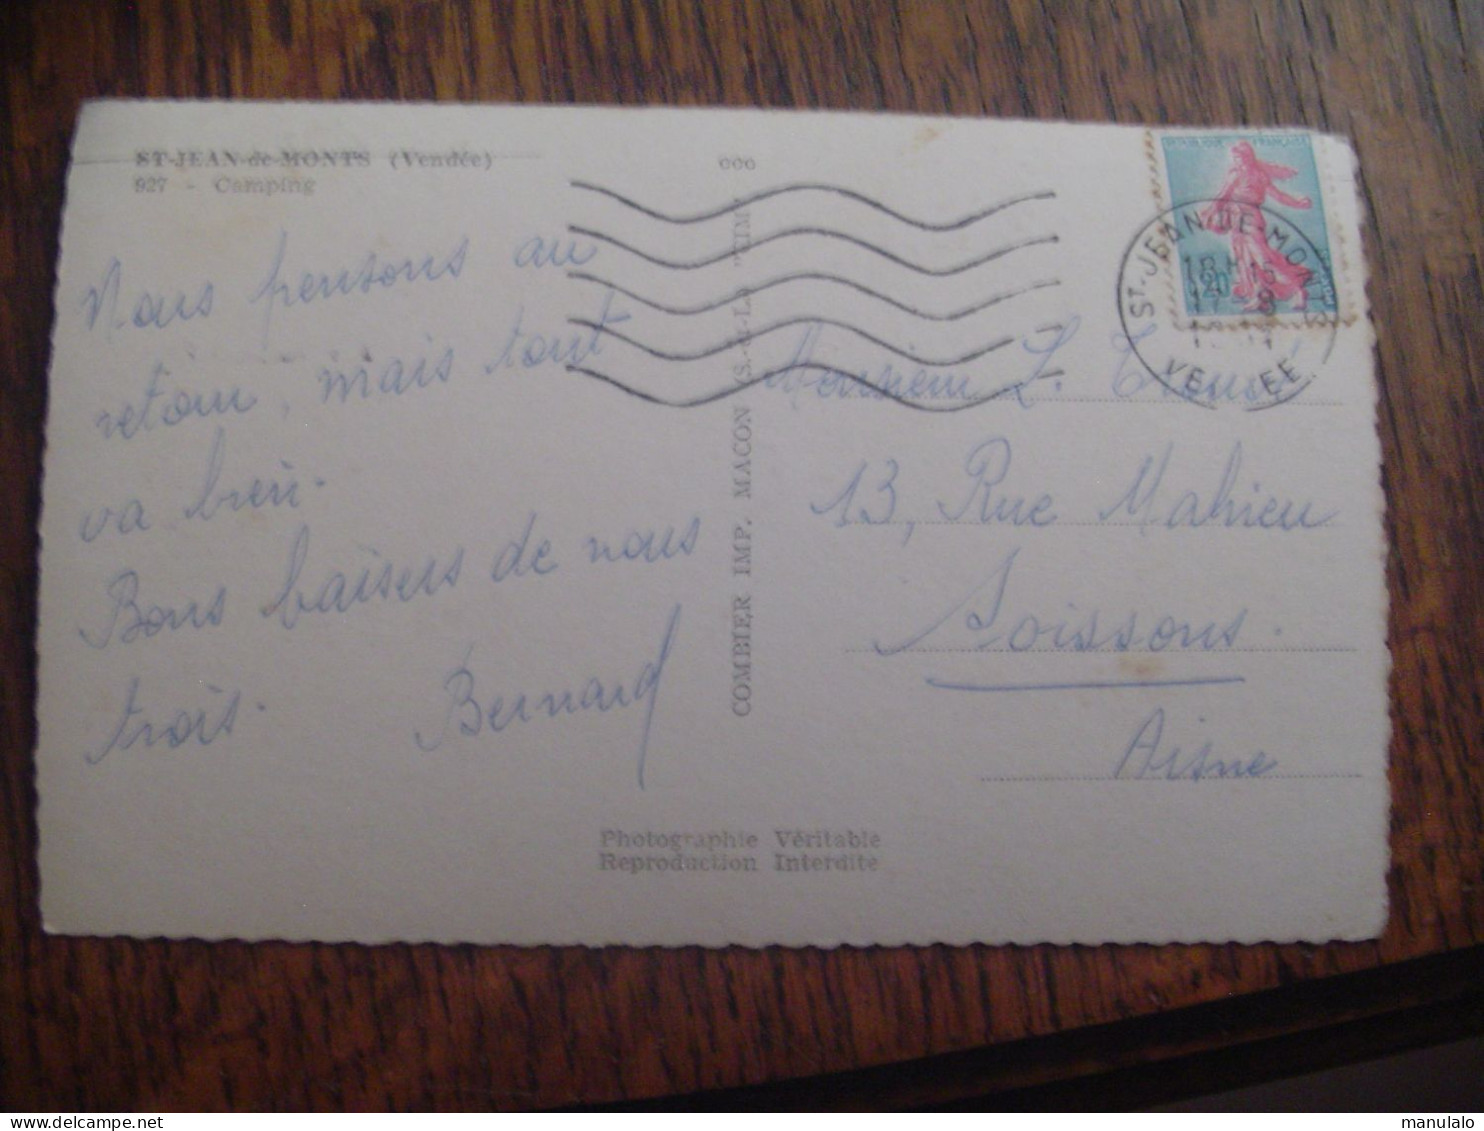 ST-JEAN-de-MONTS (Vendée)
927 - Camping
Nous pensons au
retour, mais tout
va bien.
Bons baisers de nous
trois.
Bernard
COMBIER IMP. MACON (S.-et-L.) "CIM"
Photographie Véritable
Reproduction Interdite
ST-JEAN-DE-MONTS
VENDEE
Monsieur L.
13, Rue Mahieu
Soissons.
Aisne
manulalo